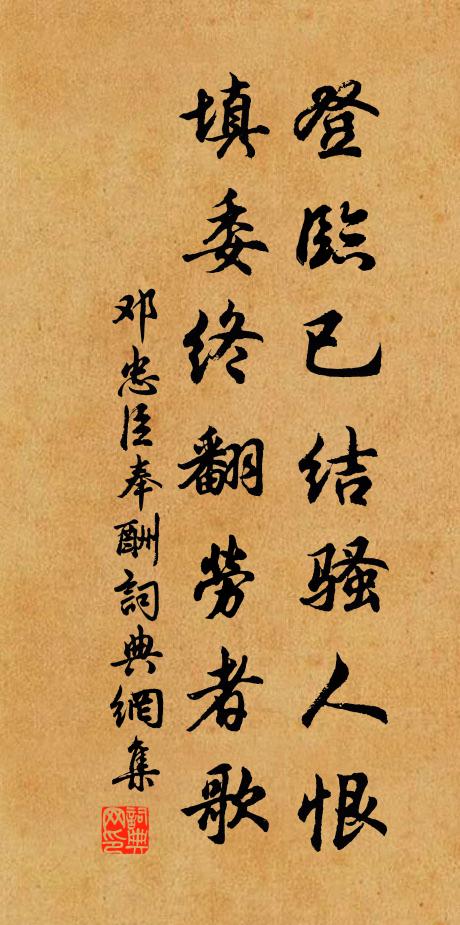 登臨已结骚人恨
填委终翻勞者歌
邓忠臣奉酬詞典網集
詞典網印